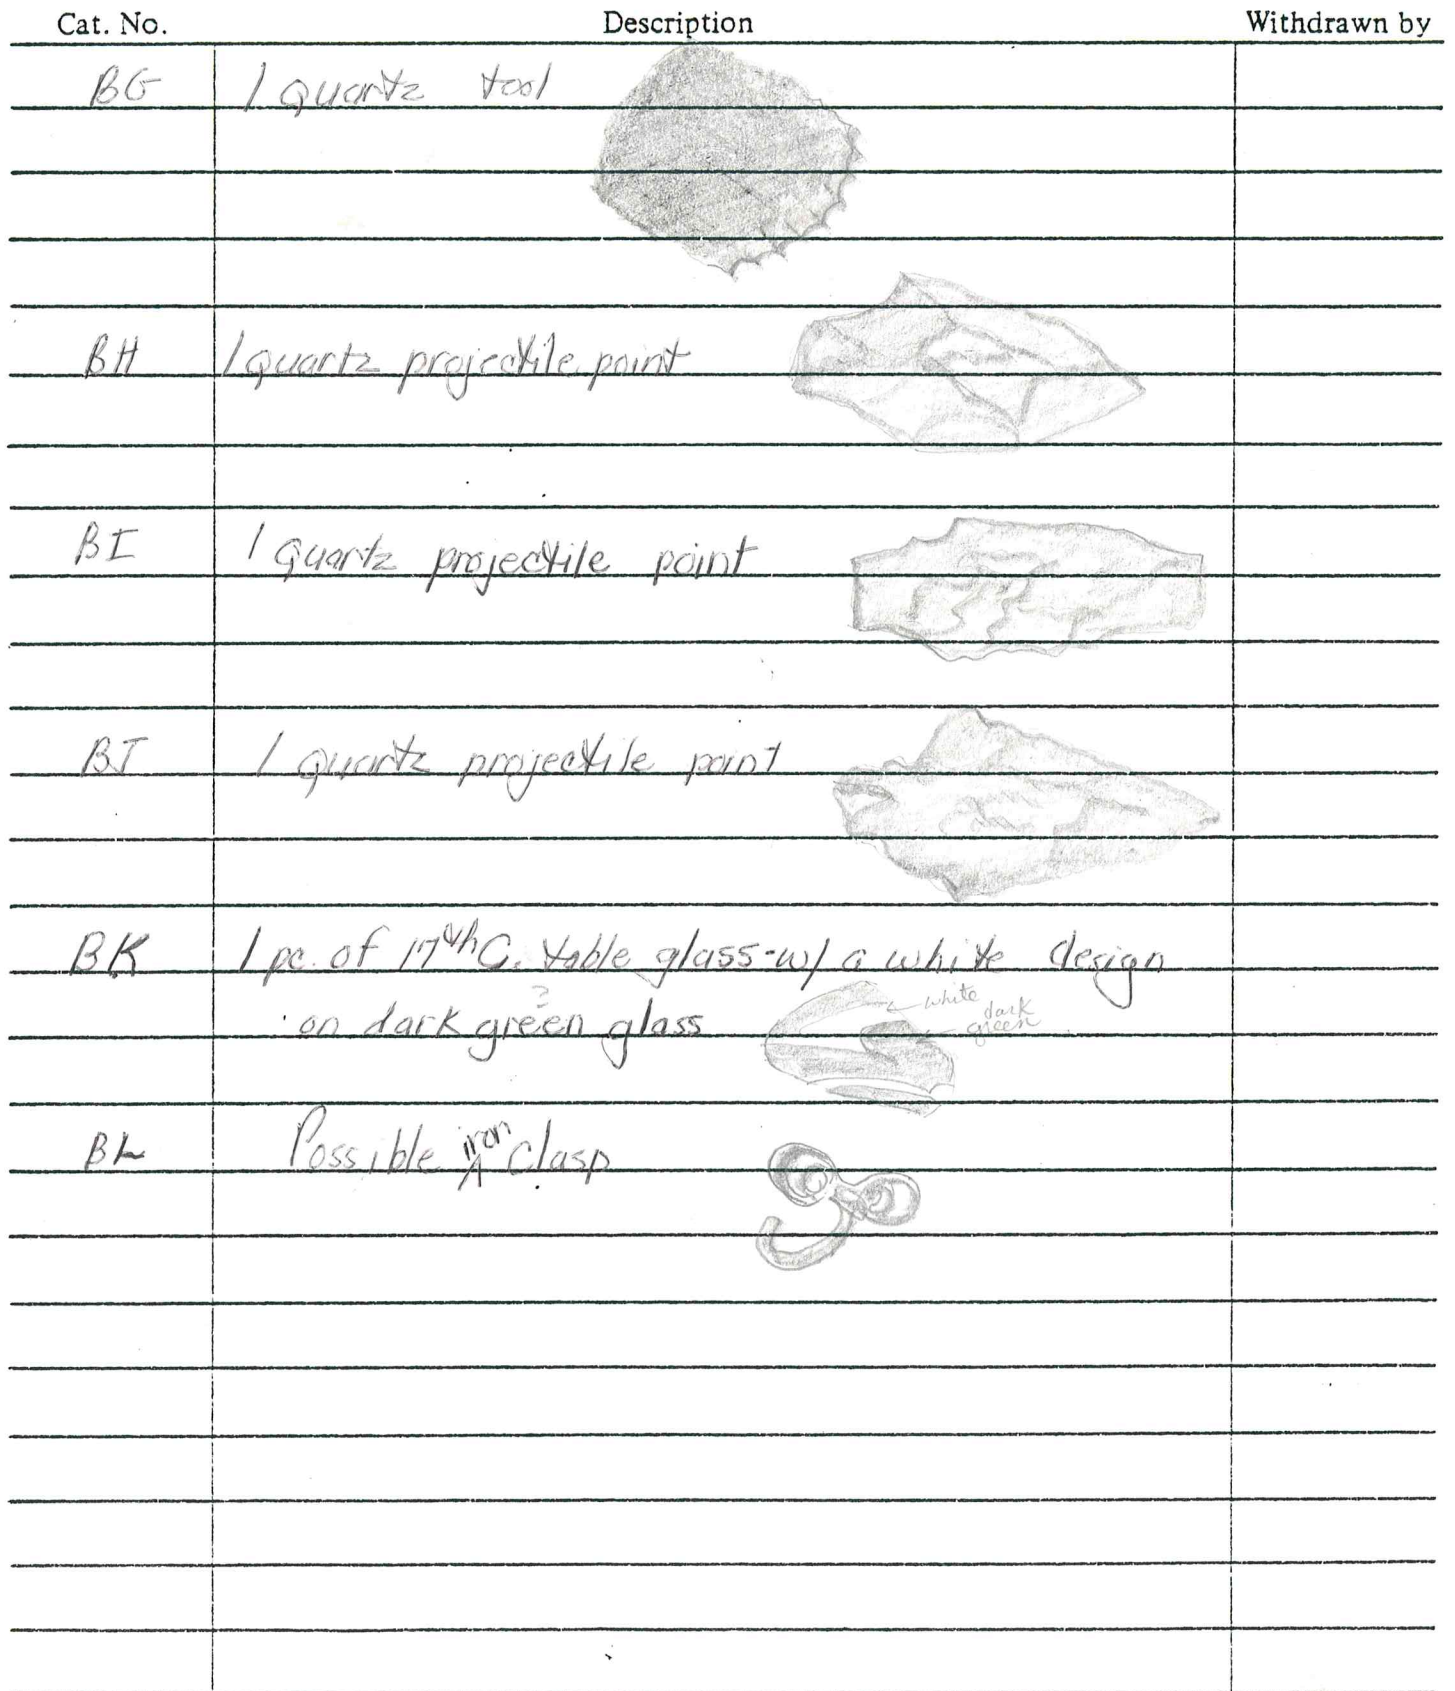 Cat. No. Description Withdrawn by
BG 1 quartz tool
BH 1 quartz projectile point
BI 1 quartz projectile point
BJ 1 quartz projectile point
BK 1 pc. of 17th C. table glass - w/ a white design
?
on dark green glass
white
dark
green
BL Possible iron clasp